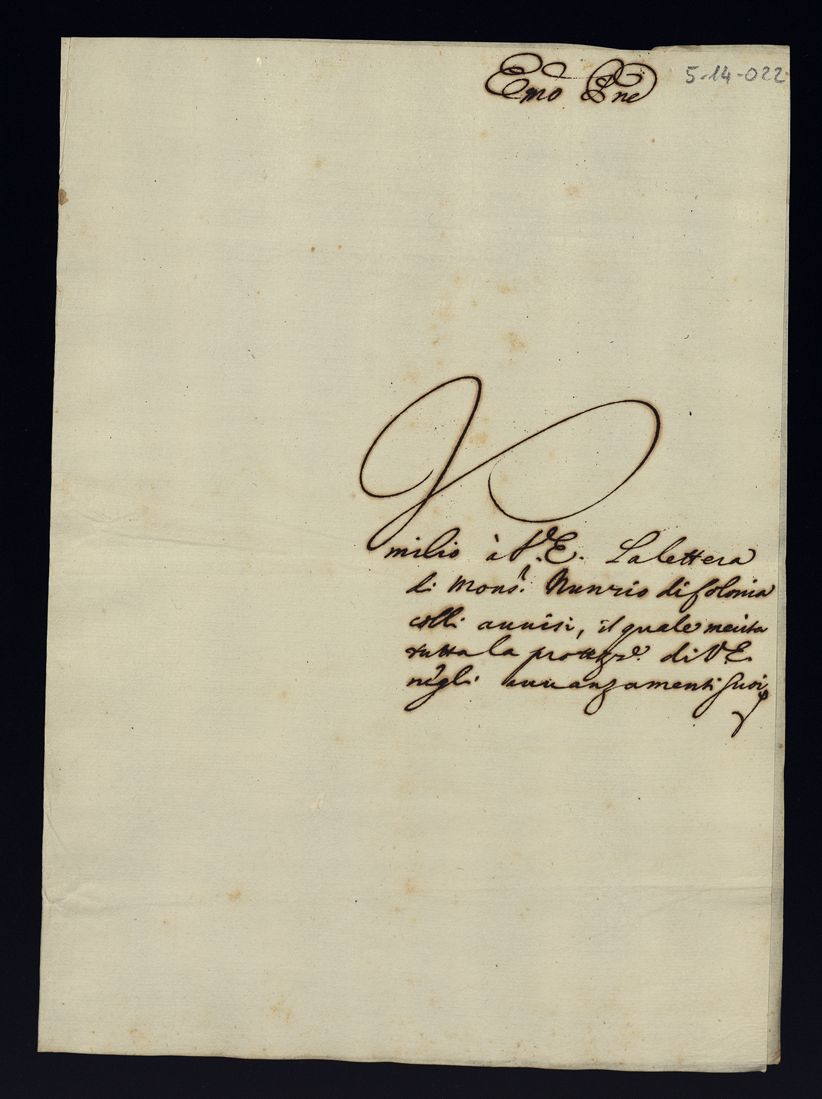 Emo Pne
5-14-022
Umilio à V. E. La lettera
di Mons.r Nunzio di Colonia
colli auuisi, il quale merita
tutta la protezze. di V. E.
negli auuanzamenti suoi